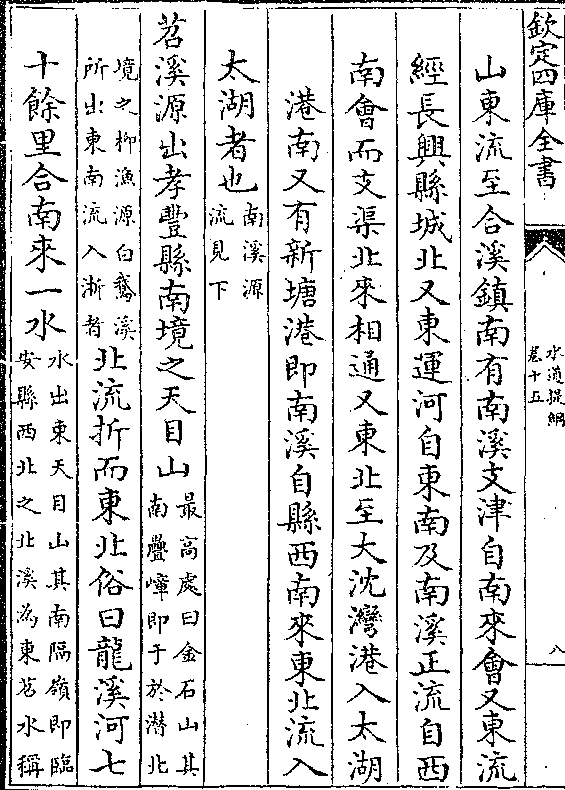 欽定四庫全書
水道提綱
卷十五
八
山東流至合溪鎮南有南溪支津自南來會又東流
經長興縣城北又東運河自東南及南溪正流自西
南會而支渠北來相通又東北至大沈灣港入太湖
港南又有新塘港即南溪自縣西南來東北流入
太湖者也南溪源
流見下
苕溪源出孝豐縣南境之天目山最高處曰金石山其
南疊嶂即于於潛北
境之柳漁源白鵞溪
所出東南流入浙者北流折而東北俗曰龍溪河七
十餘里合南來一水水出東天目山其南隔嶺即臨
安縣西北之北溪為東苕水稱